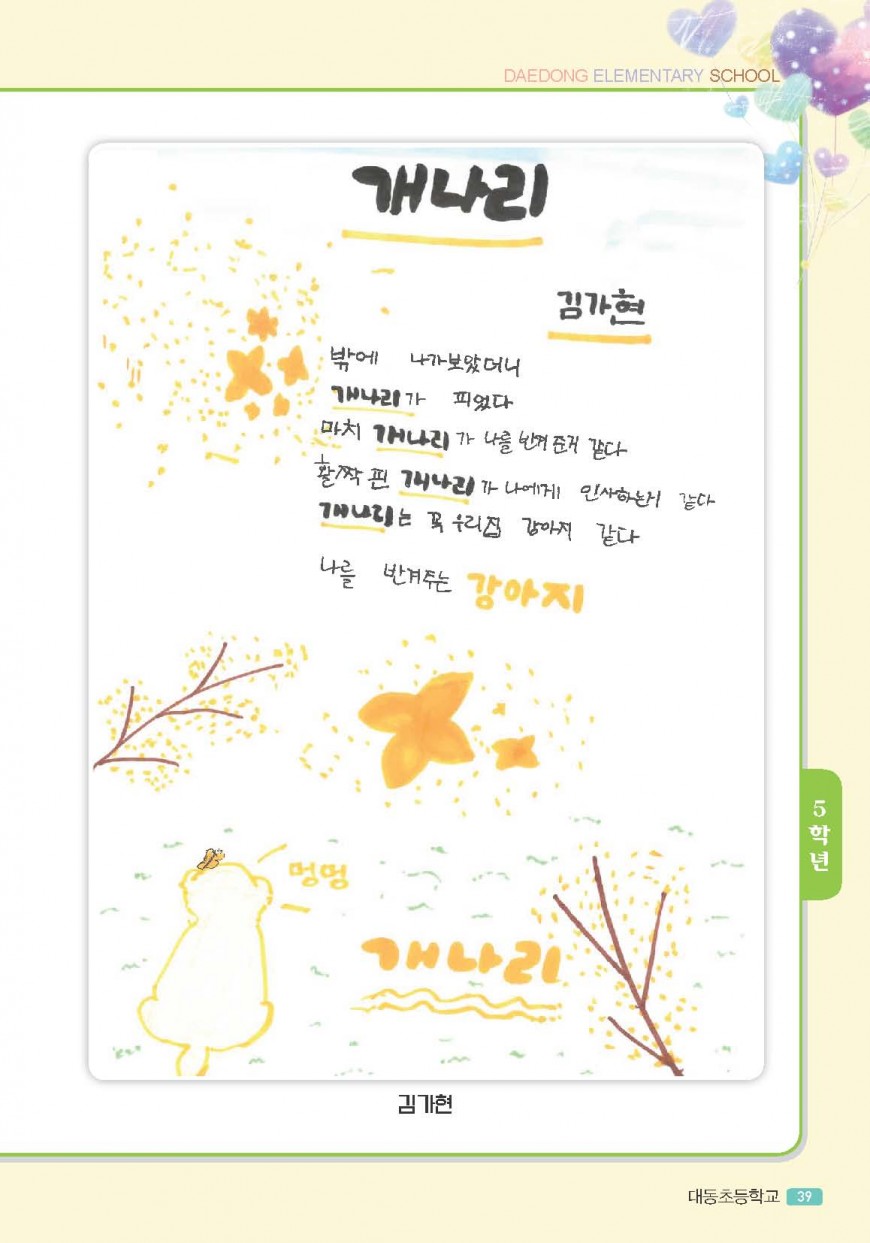 DAEDONG ELEMENTARY SCHOOL
개나리
김가현
밖에 나가보았더니
개나리가 피었다
마치 개나리가 나를 반겨준거 같다
활짝 핀 개나리가 나에게 인사하는거 같다
개나리는 꼭 우리집 강아지 같다
나를 반겨주는 강아지
멍멍
개나리
김가현
5학년
대동초등학교 39